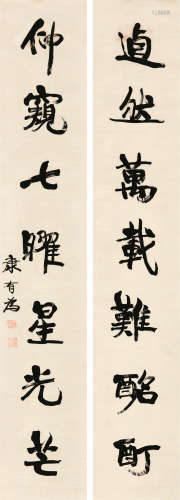 逌然萬載難酩酊
仰窺七曜星光芒
康有為